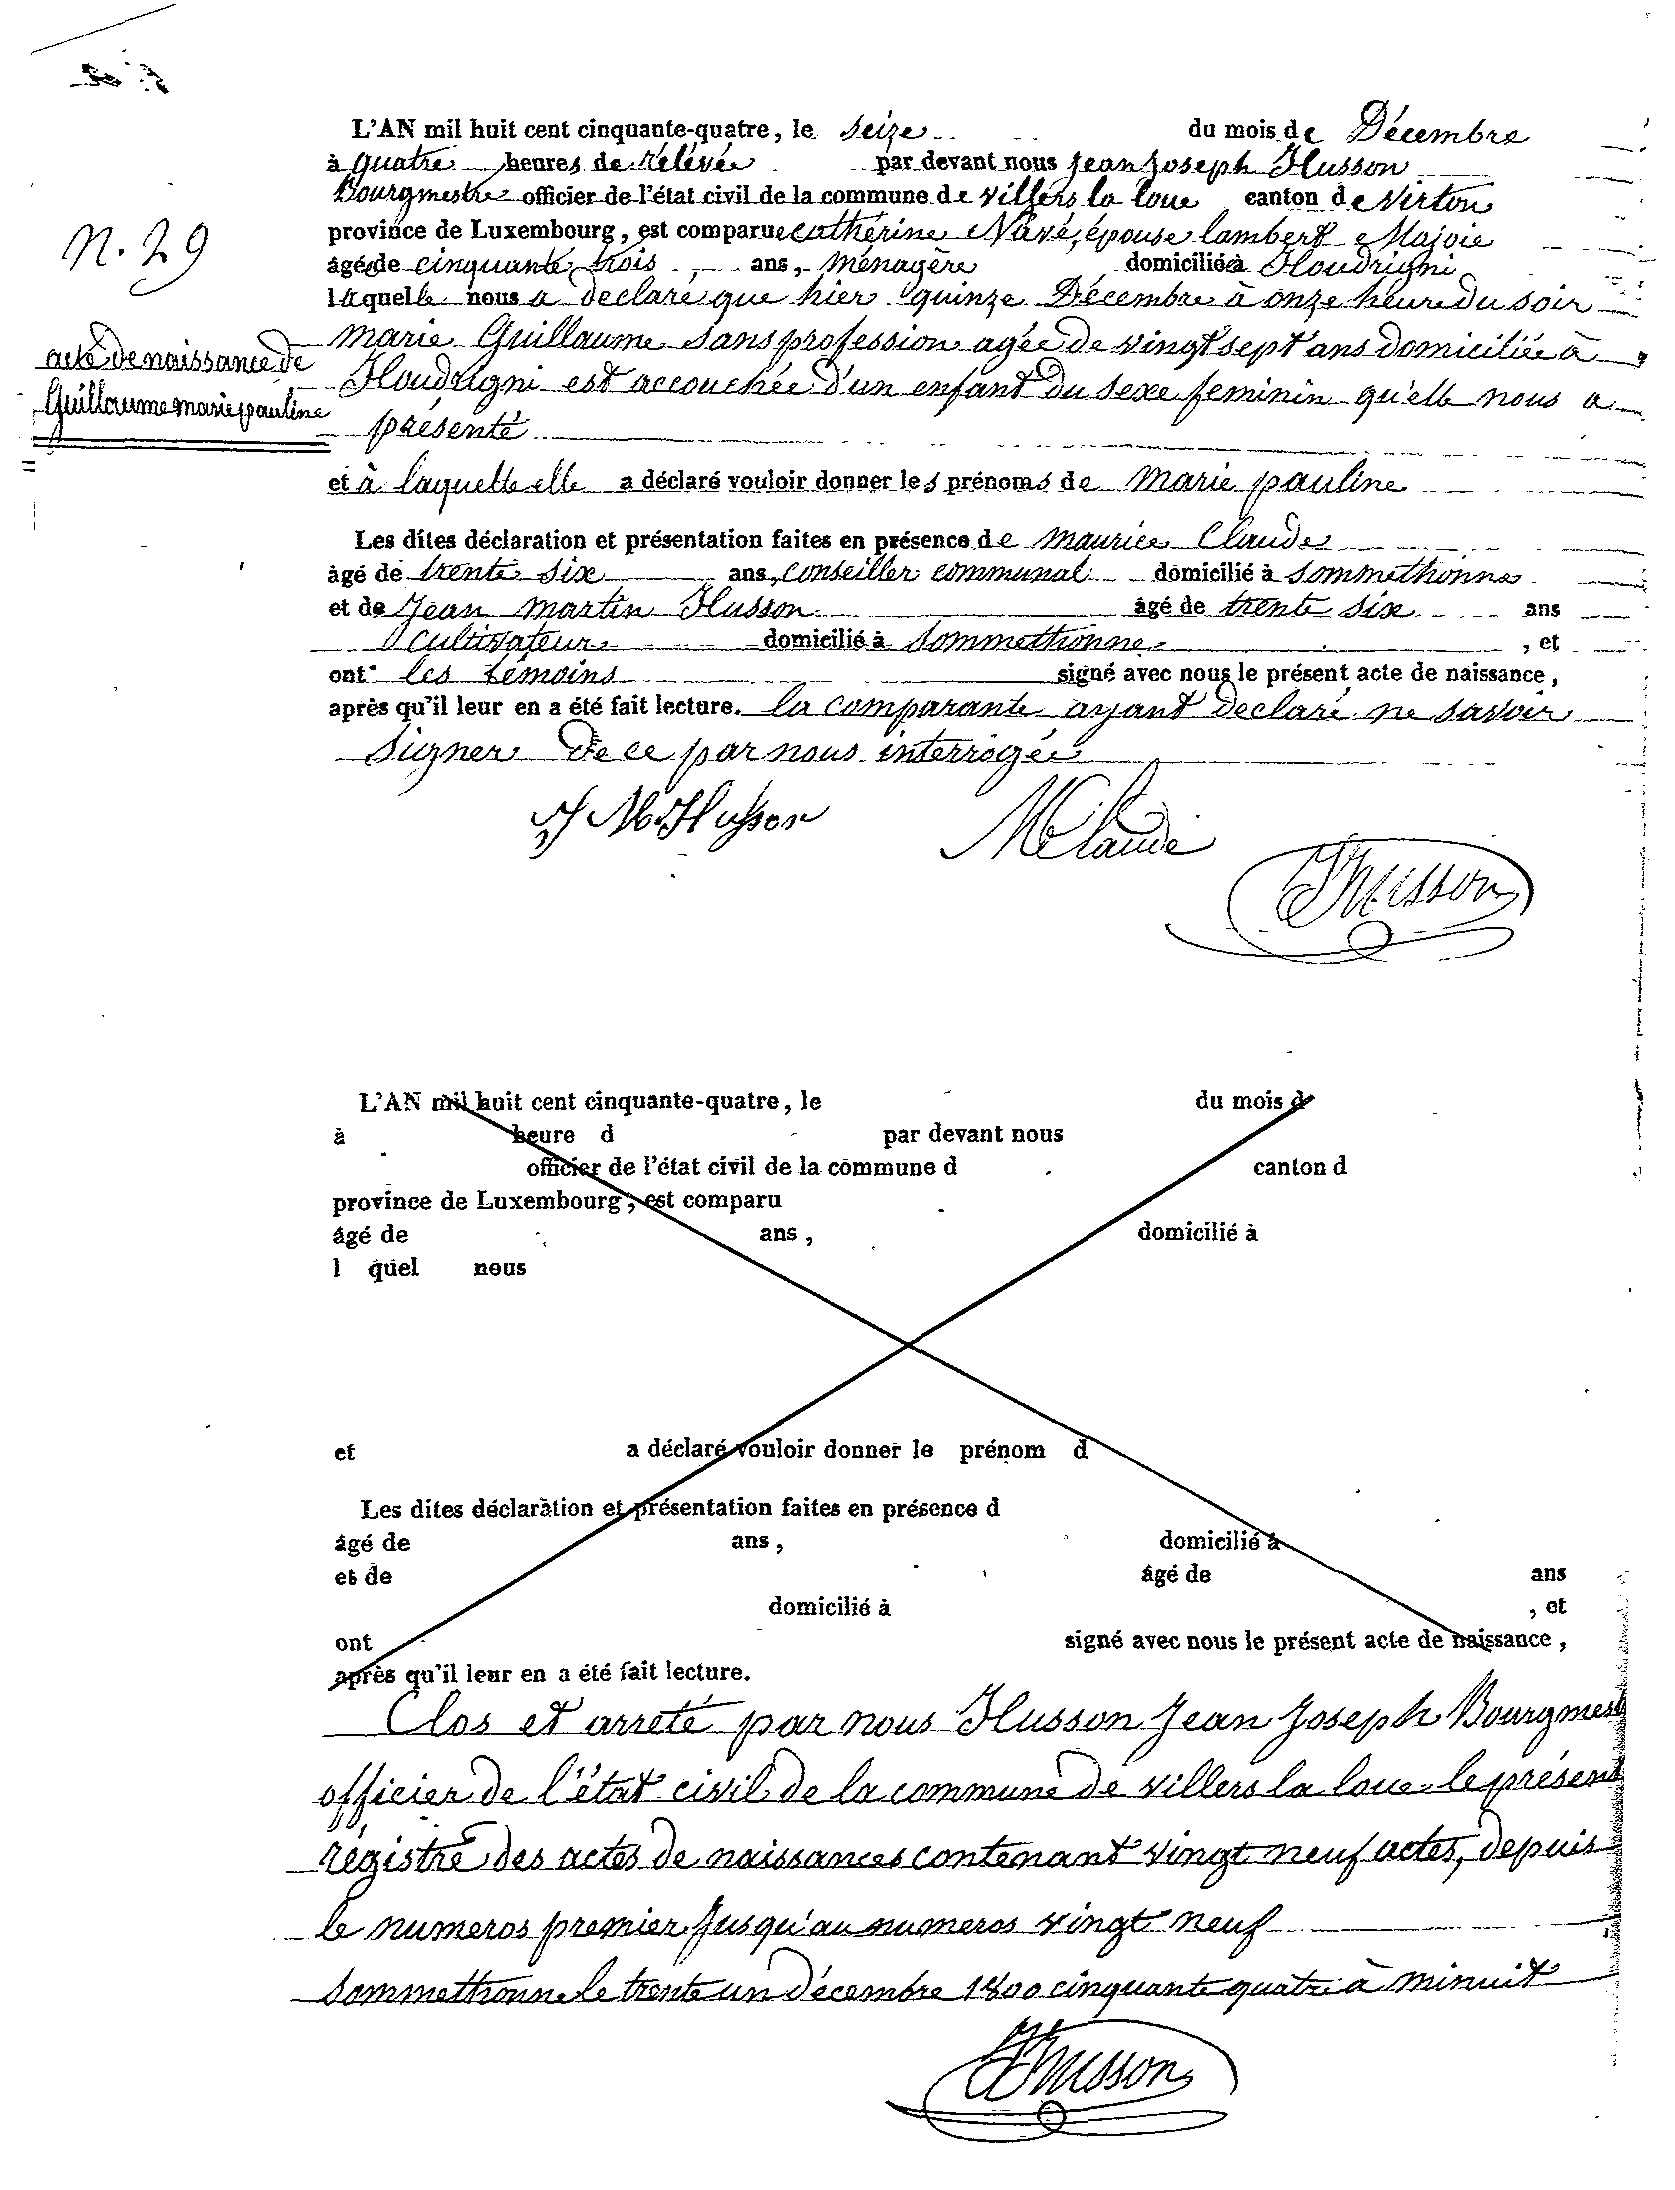 L'AN mil huit cent cinquante-quatre, le seize du mois de Décembre
à quatre heures de rélévée par devant nous jean joseph Husson
Bourgmestre officier de l'état civil de la commune de villers la loue canton de Virton
province de Luxembourg, est comparue cathérine Navé, épouse lambert Majoie
âgée de cinquante trois ans, ménagère domiciliée à Houdrigni
laquelle nous a declaré que hier quinze Décembre à onze heure du soir
N. 29
marie Guillaume sans profession agée de vingt sept ans domiciliée à
acte de naissance de
Houdrigni est accouchée d'un enfant du sexe feminin qu'elle nous a
Guillaume marie pauline
présenté
et à laquelle elle a déclaré vouloir donner les prénoms de marie pauline
Les dites déclaration et présentation faites en présence de maurice Claude
âgé de trente six ans, conseiller communal domicilié à sommethonne
et de Jean martin Husson âgé de trente six ans
cultivateur domicilié à sommethonne , et
ont les témoins signé avec nous le présent acte de naissance,
après qu'il leur en a été fait lecture. la comparante ayant declaré ne savoir
signer de ce par nous interrogée
J M Husson
M Claude
JHusson
L'AN mil huit cent cinquante-quatre, le du mois d
à heure d par devant nous
officier de l'état civil de la commune d canton d
province de Luxembourg, est comparu
âgé de ans, domicilié à
l quel nous
et a déclaré vouloir donner le prénom d
Les dites déclaration et présentation faites en présence d
âgé de ans, domicilié à
et de âgé de ans
domicilié à , et
ont signé avec nous le présent acte de naissance,
après qu'il leur en a été fait lecture.
Clos et arreté par nous Husson Jean Joseph Bourgmest
officier de l'état civil de la commune de villers la loue le présent
régistre des actes de naissances contenant vingt neuf actes, depuis
le numeros premier jusqu'au numeros vingt neuf
Sommethonne le trente un décembre 1800 cinquante quatre à minuit
JHusson